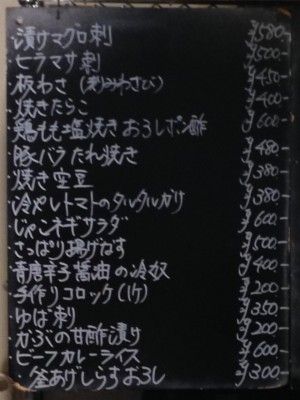 ・漬けマグロ刺 ¥580-
・ヒラマサ刺 ¥500-
・板わさ (刻みわさび) ¥450-
・焼きたらこ ¥400-
・鶏もも塩焼き おろしポン酢 ¥600-
・豚バラ たれ焼き ¥480-
・焼き空豆 ¥380-
・冷やしトマトのタルタルがけ ¥380-
・じゃこネギサラダ ¥600-
・さっぱり揚げなす ¥500-
・青唐辛子醤油の冷奴 ¥400-
・手作りコロッケ(1ケ) ¥200-
・ゆば刺 ¥350-
・かぶの甘酢漬け ¥200-
・ビーフカレーライス ¥600-
・釜あげしらすおろし ¥300-